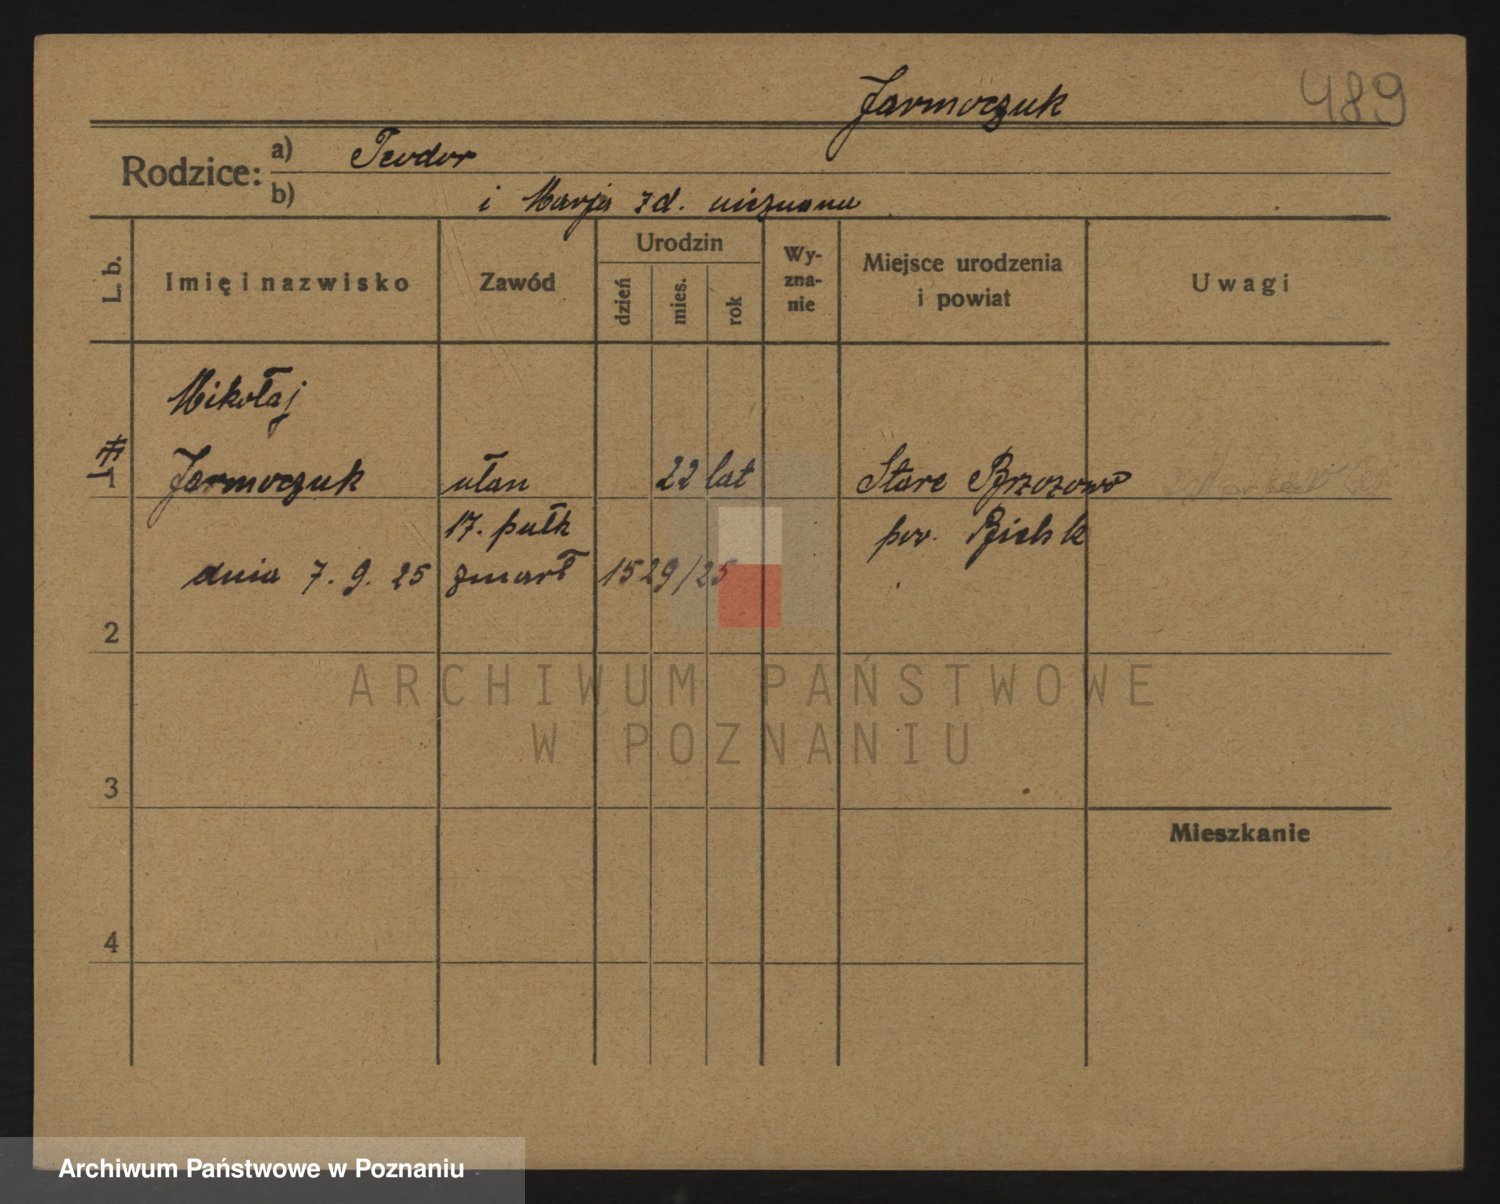 Jarmoczuk 489
Rodzice: a) Teodor
b) i Marja zd. nieznana
L. b.
Imię i nazwisko
Zawód
Urodzin
dzień
mies.
rok
Wy-
zna-
nie
Miejsce urodzenia
i powiat
Uwagi
Mikołaj
1 Jarmoczuk ułan 22 lat Stare Brzozowo
17. pułk pow. Bielsk
dnia 7. 9. 25 zmarł 1529/25
2
ARCHIWUM PAŃSTWOWE
W POZNANIU
3
Mieszkanie
4
Archiwum Państwowe w Poznaniu